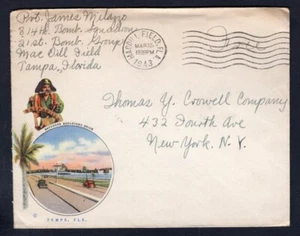 Pvt. James Milazzo
814th Bomb. Squadron
21st. Bomb. Group
Mac Dill Field
Tampa, Florida
MACDILL FIELD, FLA.
MAR
PM
1943
Free
Thomas Y. Crowell Company
432 Fourth Ave
New York. N.Y.
TAMPA, FLA.